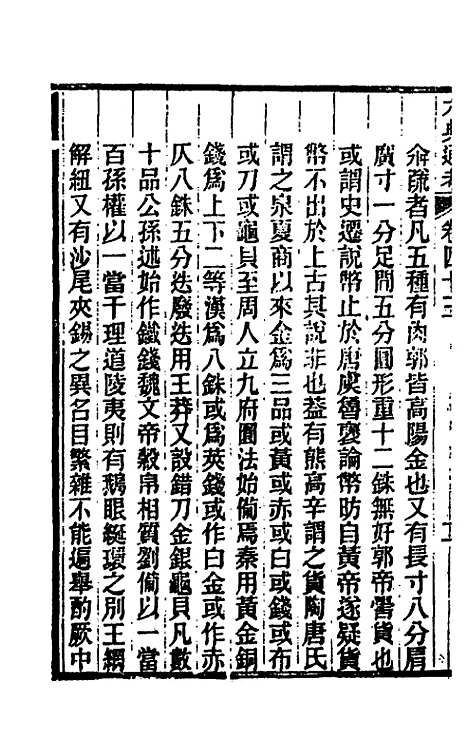 大典通考 卷四十三
畲疏者凡五種有肉郭皆高陽金也又有長寸八分肩
廣寸一分足間五分圓形重十二銖無好郭帝嚳貨也
或謂史遷說幣止於唐虞魯褒論幣昉自黃帝遂疑貨
幣不出於上古其說非也蓋有熊高辛謂之貨陶唐氏
謂之泉夏商以來金爲三品或黃或赤或白或錢或布
或刀或龜貝至周人立九府圜法始備焉秦用黃金銅
錢爲上下二等漢爲八銖或爲莢錢或作白金或作赤
仄八銖五分迭廢迭用王莽又設錯刀金銀龜貝凡數
十品公孫述始作鐵錢魏文帝穀帛相質劉備以一當
百孫權以一當千理道陵夷則有鵝眼綖環之別王綱
解紐又有沙尾夾錫之異名目繁雜不能遍舉酌厥中